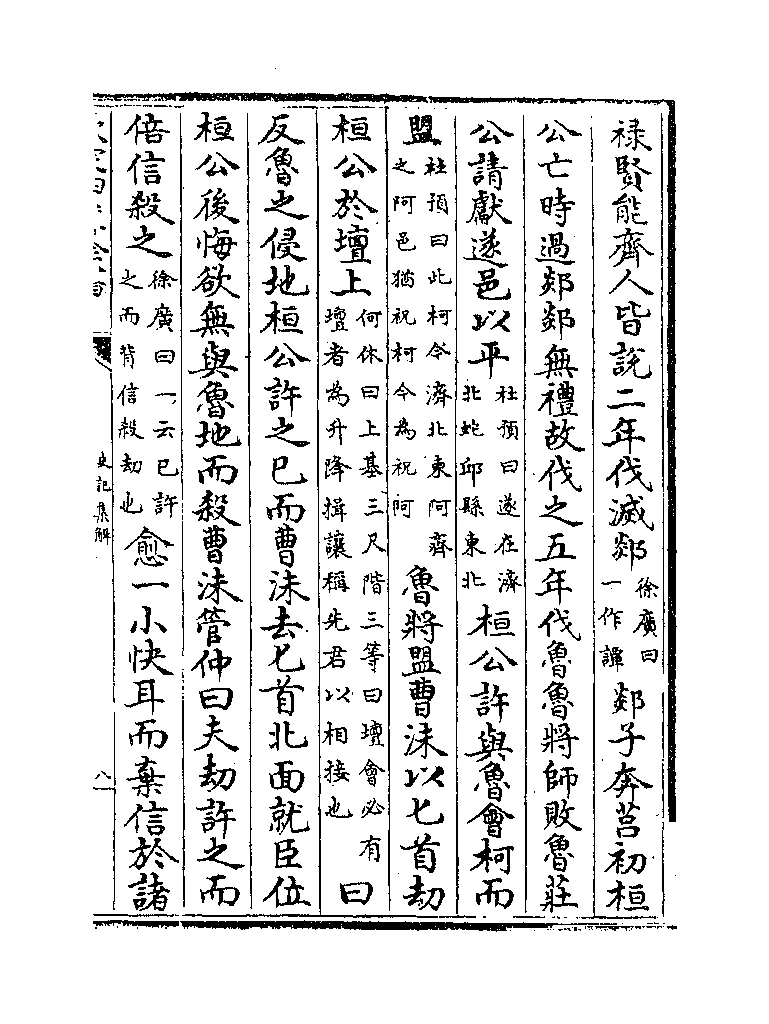 禄賢能齊人皆説二年伐滅郯徐廣曰一作譚郯子奔莒初桓
公亡時過郯郯無禮故伐之五年伐魯魯將師敗魯莊
公請獻遂邑以平杜預曰遂在濟北蛇邱縣東北桓公許與魯會柯而
盟杜預曰此柯今濟北東阿齊之阿邑猶祝柯今為祝阿魯將盟曹沬以匕首劫
桓公於壇上何休曰上基三尺階三等曰壇會必有壇者為升降揖讓稱先君以相接也曰
反魯之侵地桓公許之已而曹沬去匕首北面就臣位
桓公後悔欲無與魯地而殺曹沬管仲曰夫劫許之而
倍信殺之徐廣曰一云已許之而背信殺劫也愈一小快耳而棄信於諸
史記集解
八